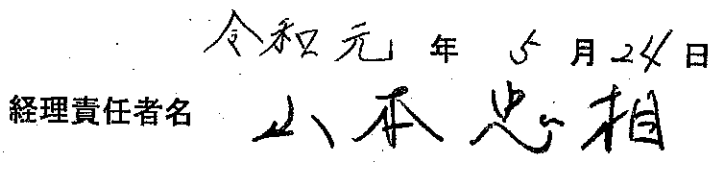 令和元年 5月24日
経理責任者名 山本忠相